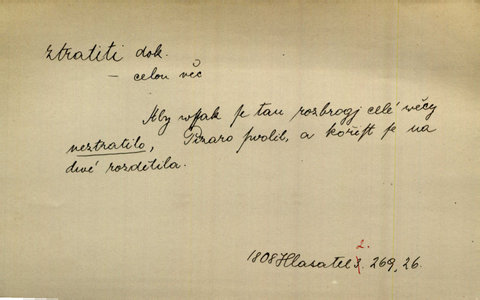 ztratiti dok.
– celou věc
Aby wssak se tau rozbrogj celé wěcy
neztratilo, Pizaro swolil, a kořist se na
dwé rozdělila.
2.
1808 Hlasatel 3. 269, 26.